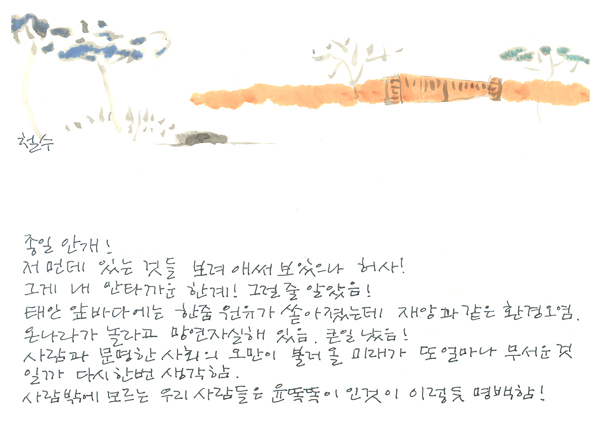 철수
종일 안개!
저 먼데 있는 것들 보려 애써 보았으나 허사!
그게 내 안타까운 한계! 그럴 줄 알았음!
태안 앞바다에는 한줌 원유가 쏟아졌는데 재앙과 같은 환경오염.
온나라가 놀라고 망연자실해 있음. 큰일 났음!
사람과 문명한 사회의 오만이 불러 올 미래가 또 얼마나 무서운 것
일까 다시한번 생각함.
사람밖에 모르는 우리 사람들은 윤똑똑이 인것이 이렇듯 명백함!